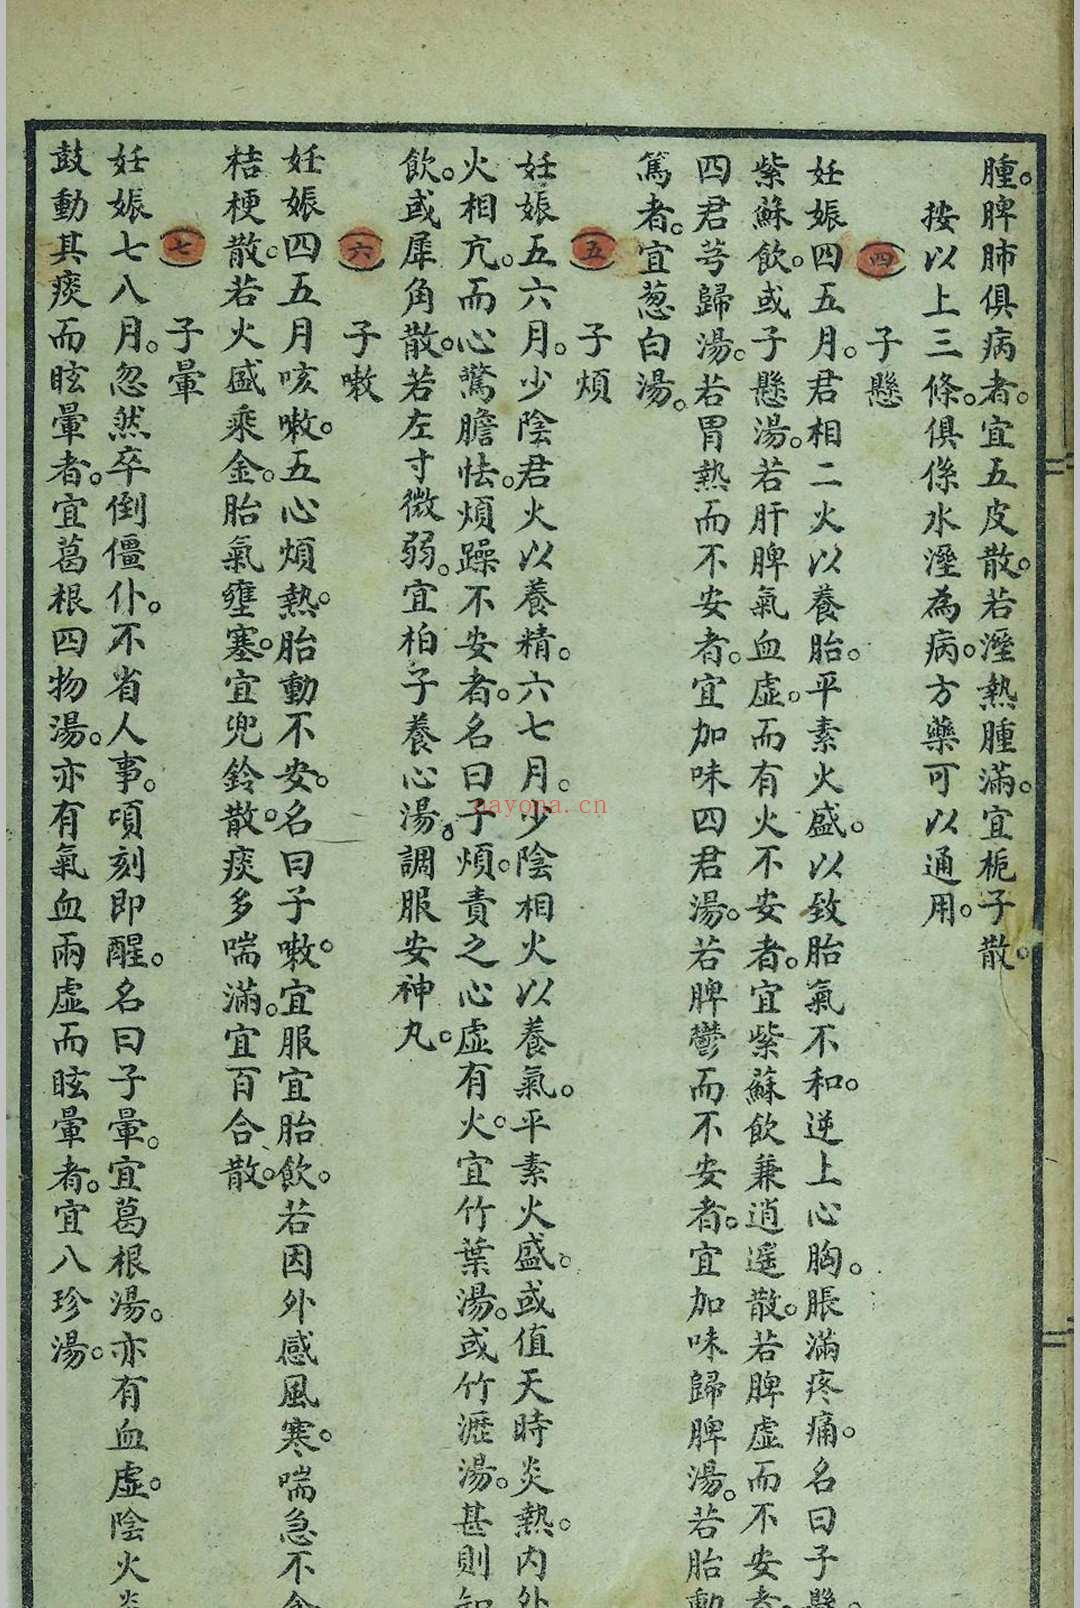 腫。脾肺俱病者。宜五皮散。若溼熱腫滿。宜梔子散。
按以上三條。俱係水溼為病。方藥可以通用。
(四) 子懸
妊娠四五月。君相二火以養胎。平素火盛。以致胎氣不和。逆上心胸。脹滿疼痛。名曰子懸
紫蘇飲。或子懸湯。若肝脾氣血虛。而有火不安者。宜紫蘇飲兼逍遙散。若脾虛而不安者
四君芎歸湯。若胃熱而不安者。宜加味四君湯。若脾鬱而不安者。宜加味歸脾湯。若胎動
篤者。宜葱白湯。
(五) 子煩
妊娠五六月。少陰君火以養精。六七月。少陰相火以養氣。平素火盛。或值天時炎熱。內外
火相亢。而心驚膽怯。煩躁不安者。名曰子煩。責之心虛有火。宜竹葉湯。或竹瀝湯。甚則知
飲。或犀角散。若左寸微弱。宜柏子養心湯。調服安神丸。
(六) 子嗽
妊娠四五月咳嗽。五心煩熱。胎動不安。名曰子嗽。宜服宜胎飲。若因外感風寒。喘急不食
桔梗散。若火盛乘金。胎氣壅塞。宜兜鈴散。痰多喘滿。宜百合散。
(七) 子暈
妊娠七八月。忽然卒倒僵仆。不省人事。頃刻即醒。名曰子暈。宜葛根湯。亦有血虛。陰火炎
鼓動其痰而眩暈者。宜葛根四物湯。亦有氣血兩虛而眩暈者。宜八珍湯。
nayona.cn